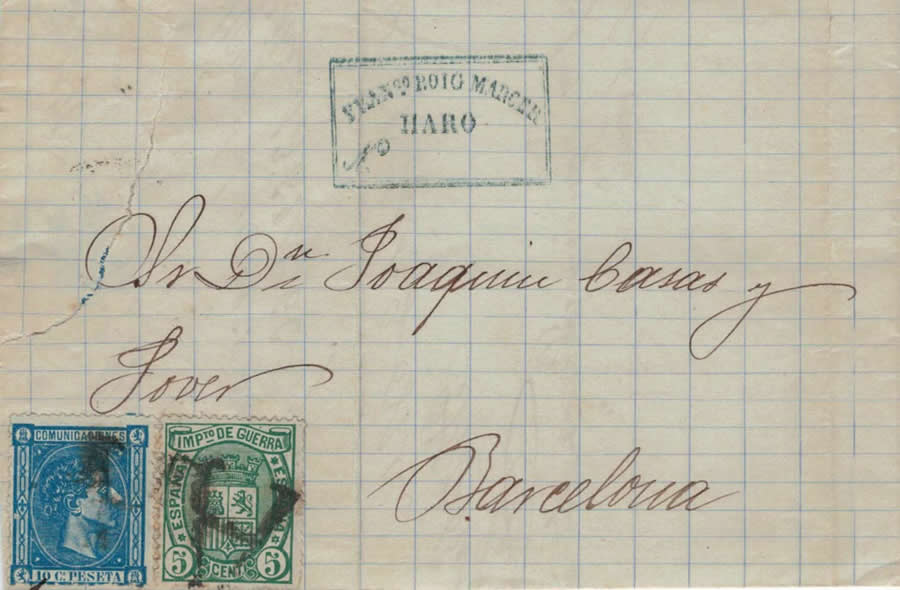 FRANco ROIG MARCER
HARO
Sr Dn Joaquin Casas y
Jover
Barcelona
COMUNICACIONES
10 C. PESETA
IMPTO DE GUERRA
ESPAÑA
ESPAÑA
5 CENT. 5